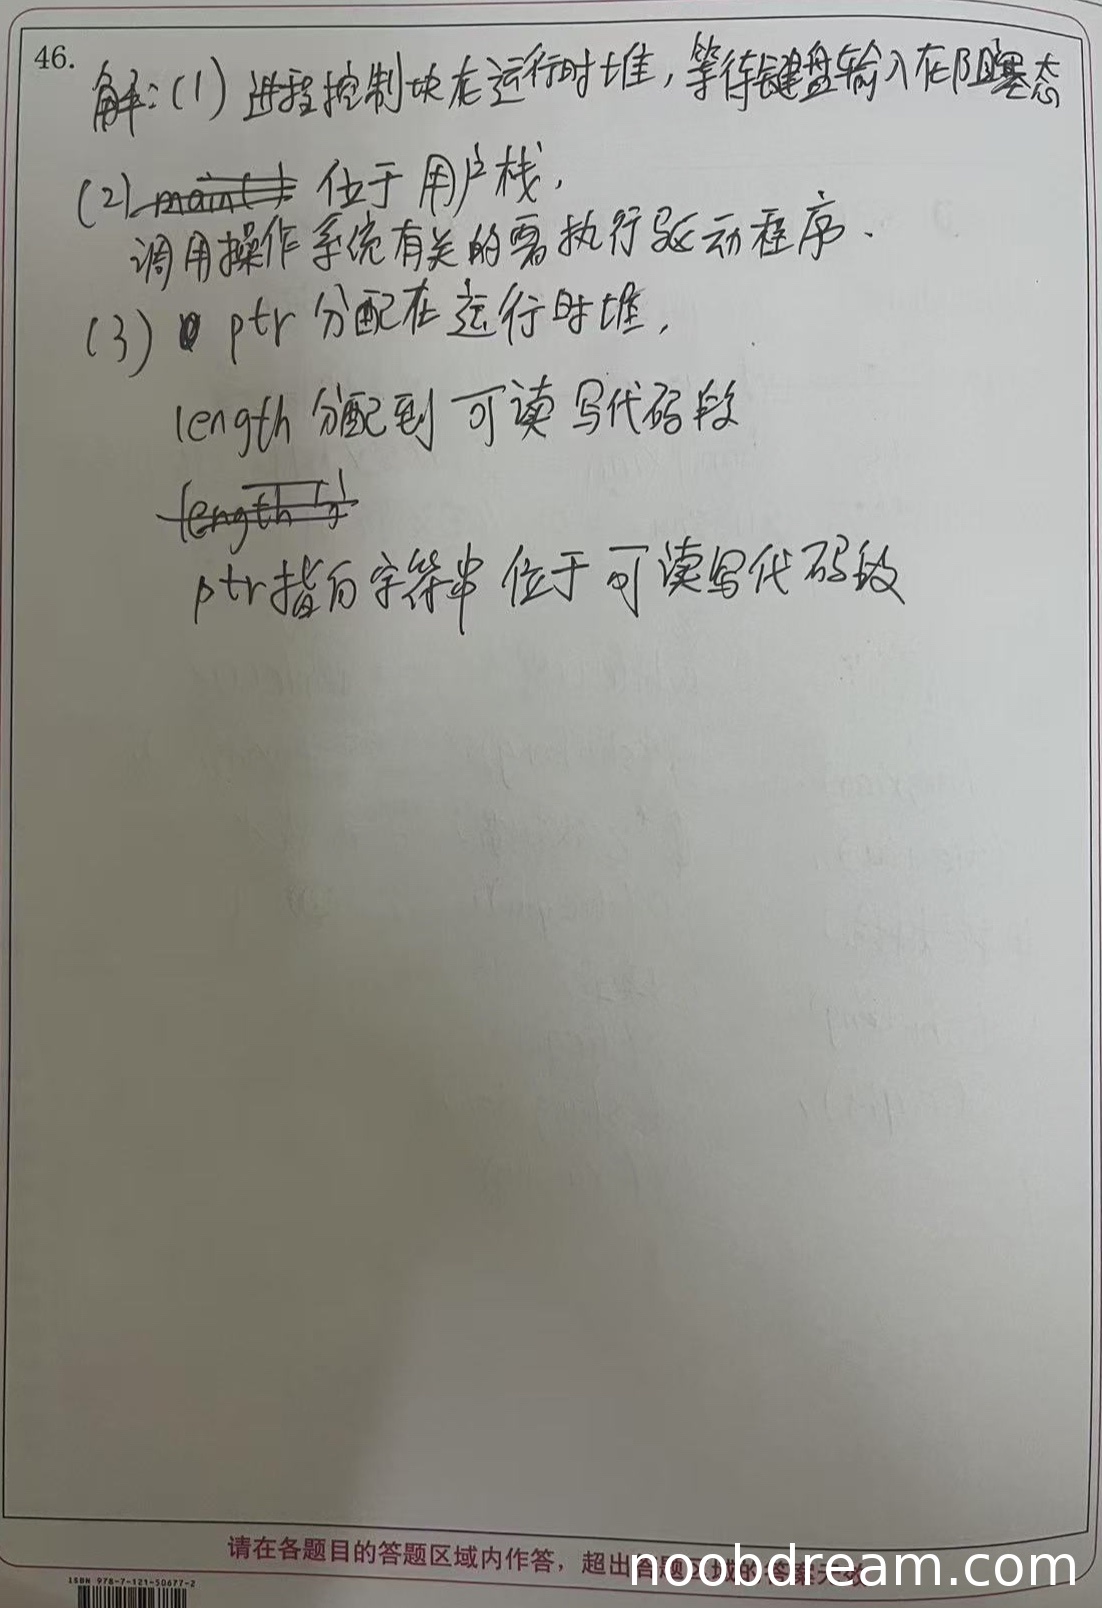 46.
解:(1) 进程控制块在运行时堆,等待键盘输入在阻塞态
(2) main() 位于用户栈,
调用操作系统有关的需执行驱动程序.
(3) ptr 分配在运行时堆,
length 分配到 可读写代码段
length 为
ptr指向字符串 位于可读写代码段
请在各题目的答题区域内作答,超出答题区域的答案无效
ISBN 978-7-121-50677-2
noobdream.com